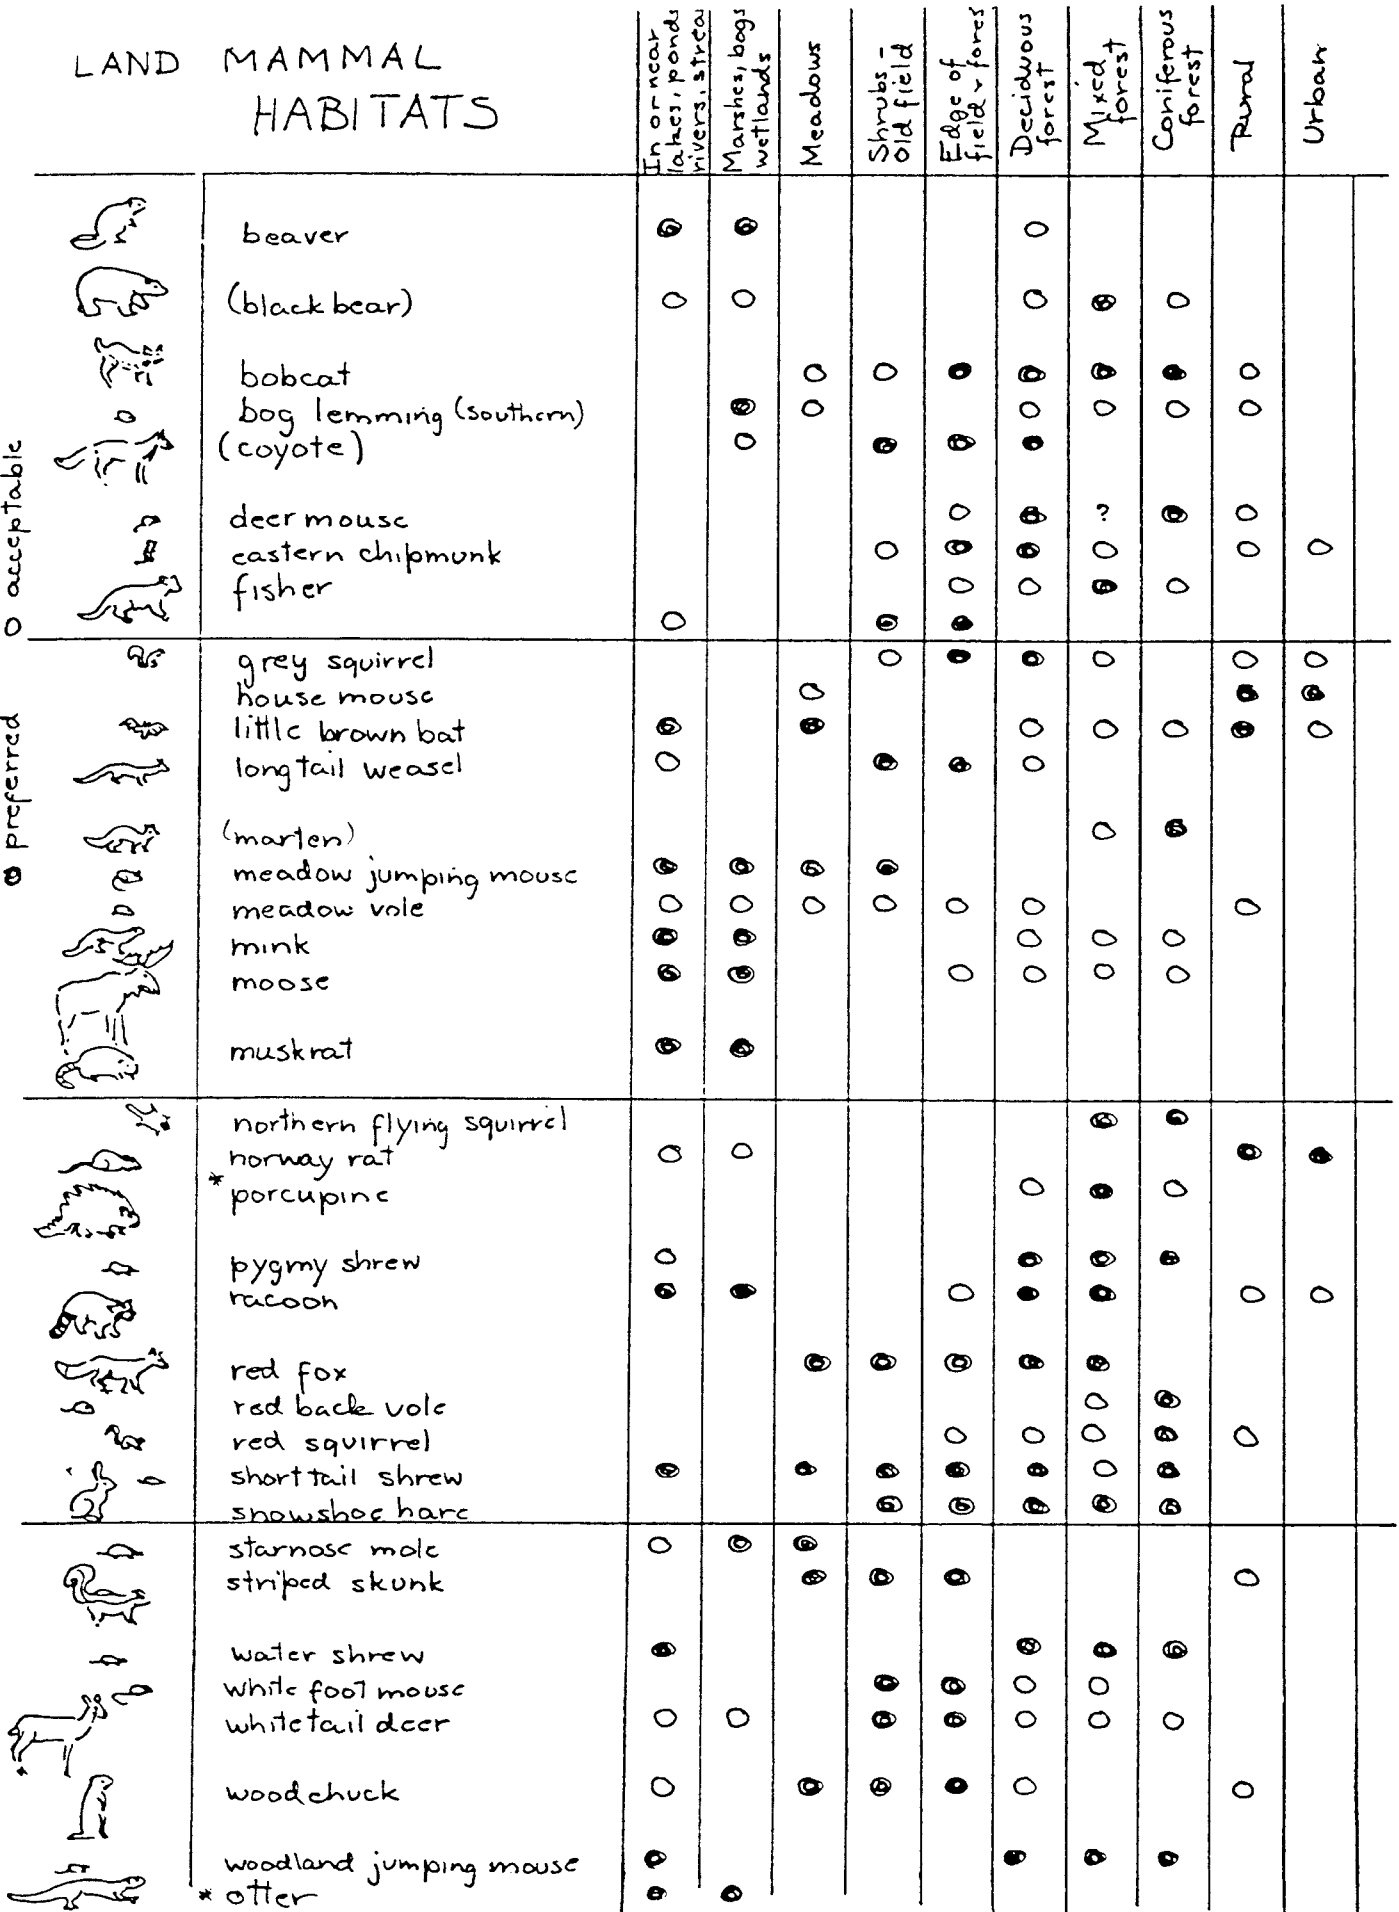 LAND MAMMAL
HABITATS
In or near
lakes, ponds
rivers, strea
Marshes, bogs
wetlands
Meadows
Shrubs -
Old field
Edge of
field & fores
Deciduous
forest
Mixed
forest
Coniferous
forest
Rural
Urban
O acceptable
preferred
beaver
(black bear)
bobcat
bog lemming (southern)
(coyote)
deer mouse
?
eastern chipmunk
fisher
grey squirrel
house mouse
little brown bat
longtail weasel
(marten)
meadow jumping mouse
meadow vole
mink
moose
muskrat
northern flying squirrel
norway rat
* porcupine
pygmy shrew
racoon
red fox
red back vole
red squirrel
shorttail shrew
snowshoe hare
starnose mole
striped skunk
water shrew
white foot mouse
whitetail deer
woodchuck
woodland jumping mouse
* otter